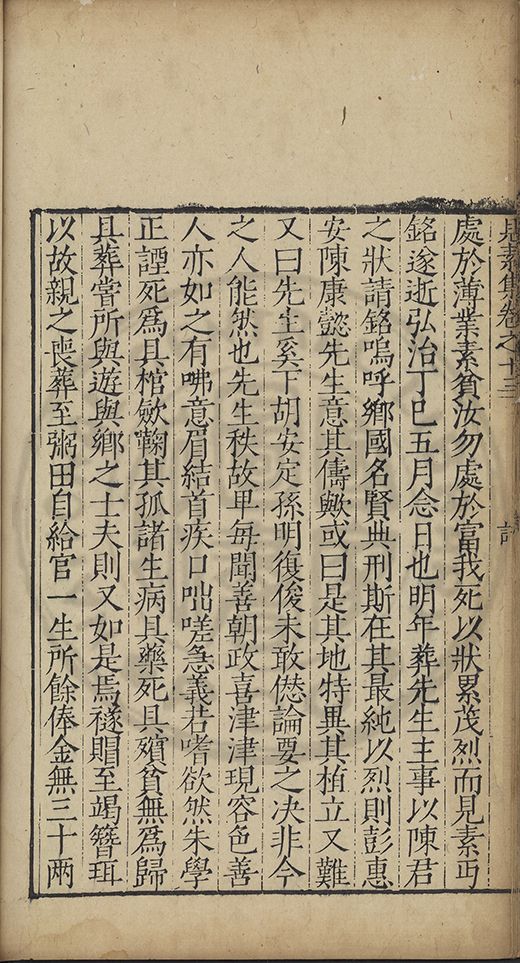 見素集卷之十三
處於薄業素貧汝勿處於富我死以狀累茂烈而見素丐
銘遂逝弘治丁巳五月念日也明年葬先生主事以陳君
之狀請銘嗚呼鄉國名賢典刑斯在其最純以烈則彭惠
安陳康懿先生意其儔歟或曰是其地特異其植立又難
又曰先生奚下胡安定孫明復後未敢僁論要之决非今
之人能然也先生秩故卑每聞善朝政喜津津現容色善
人亦如之有咈意眉結首疾口咄嗟急義君嗜欲然朱學
正諲死爲具棺歛鞠其孤諸生病具藥死具殯貧無爲歸
具葬嘗所與遊與鄉之士夫則又如是焉襚賵至竭簪珥
以故親之喪葬至粥田自給官一生所餘俸金無三十兩